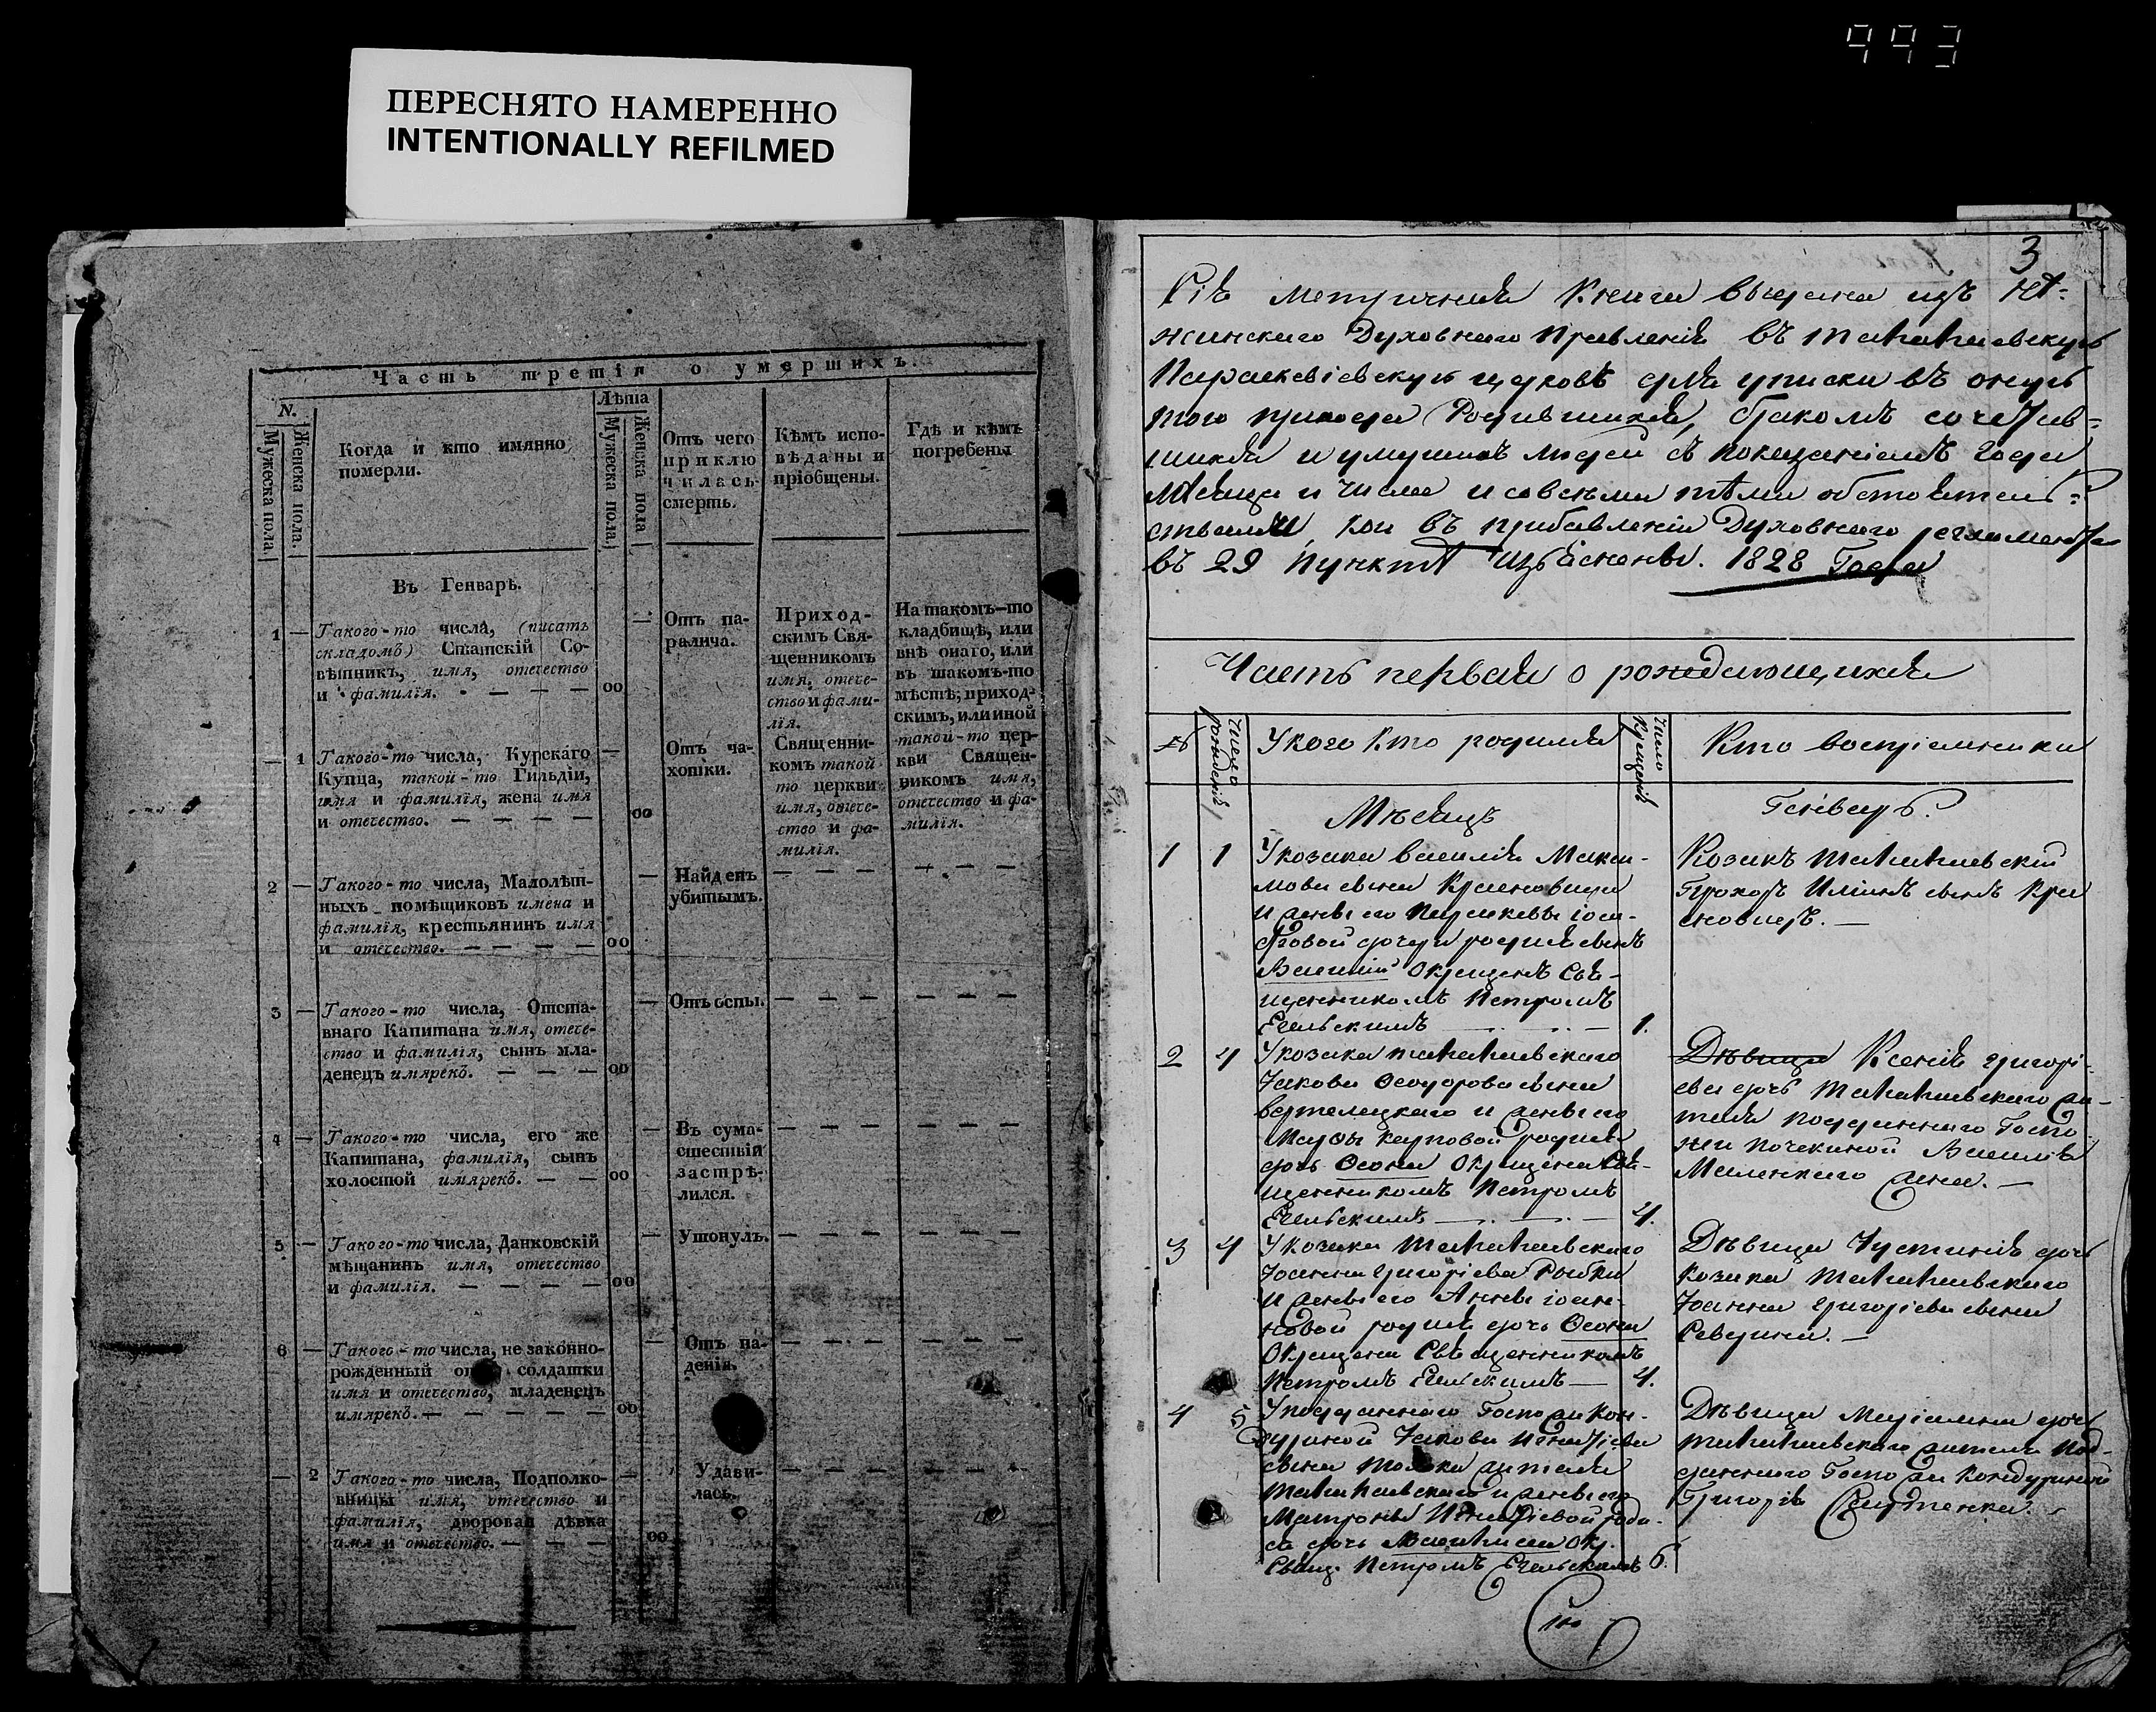 993
ПЕРЕСНЯТО НАМЕРЕННО
INTENTIONALLY REFILMED
Часть третія о умершихъ.
N.
Мужеска пола.
Женска пола.
Когда и кто имянно
померли.
Лѣта
Мужеска пола.
Женска пола
Отъ чего
приклю
чилась
смерть.
Кѣмъ испо-
вѣданы и
пріобщены.
Гдѣ и кѣмъ
погребены
Въ Генварѣ.
1 — Такого-то числа, (писать
складомъ) Статскій Со-
вѣтникъ, имя, отечество
и фамилія. — — — 00
— Отъ па-
ралича.
Приход-
скимъ Свя-
щенникомъ
имя, отече-
ство и фами-
лія.
На такомъ-то
кладбищѣ, или
внѣ онаго, или
въ такомъ-то
мѣстѣ; приход-
скимъ, или иной
такой-то цер-
кви Священ-
никомъ имя,
отечество и фа-
милія.
— 1 Такого-то числа, Курскаго
Купца, такой-то Гильдіи,
имя и фамилія, жена имя
и отечество. — — — — 00
Отъ ча-
хотки.
Священни-
комъ такой
то церкви
имя, отече-
ство и фа-
милія.
2 — Такого-то числа, Малолѣт-
ныхъ помѣщиковъ имена и
фамилія, крестьянинъ имя
и отечество. — — — — 00
— Найденъ
убитымъ.
3 — Такого-то числа, Отста-
внаго Капитана имя, отече-
ство и фамилія, сынъ мла-
денецъ имярекъ. — — — 00
— Отъ оспы.
4 — Такого-то числа, его же
Капитана, фамилія, сынъ
холостой имярекъ. — — 00
— Въ сума-
сшествіи
застрѣ-
лился.
5 — Такого-то числа, Данковскій
мѣщанинъ имя, отечество
и фамилія. — — — — 00
— Утонулъ.
6 — Такого-то числа, не законно-
рожденный отъ солдатки
имя и отечество, младенецъ
имярекъ. — — — — — 00
— Отъ па-
денія.
— 2 Такого-то числа, Подполко-
вницы имя, отечество и
фамилія, дворовая дѣвка
имя и отечество. — — — 00
Удави-
лась.
3
Сія метричная Книга выдана изъ Нѣ-
жинскаго Духовнаго Правленія въ
Параскевіевскую церковь для уписки въ оную
того прихода Родившихся, бракомъ сочетав-
шихся и умершихъ людей съ показаніемъ года
мѣсяца и числа и со всѣми тѣми обстоятель-
ствами, кои въ прибавленіи Духовного регламента
въ 29 пунктѣ изъяснены. 1828 Года
Часть первая о рождающихся
№
Число рожденія
У кого кто родился
Число крещенія
Кто воспріемники
Мѣсяцъ
Генварь.
1 1 У козака Василія Макси-
мова сына Красновида
и жены его Параскевы іоси-
фовой дочери родился сынъ
Василій окрещенъ Свя-
щенникомъ Петромъ
1.
Козакъ
Прохоръ сынъ Кра
сновидъ. —
2 4 У козака
Іакова Феодорова сына
Вертелецкаго и жены его
Марфы Карповой родилась
дочь Феония окрещена Свя-
щенникомъ Петромъ
4.
Дѣвица Ксенія григорі-
ева дочь жи-
теля подданнаго Госпо-
жи Почекиной Василія
Маленкаго жена. —
3 4 У козака
Іоанна григоріева Рыбки
и жены его Анны іоан-
новой родилась дочь
Окрещена Священникомъ
Петромъ — 4.
Дѣвица Іустинія дочь
козака
Іоанна григоріева сына
4 5 У подданнаго Госпожи Кон-
дуриной Іакова Игнатіева
сына жителя
и жены его
Матроны Игнатіевой роди-
ся дочь окр.
Свящ. Петромъ 6.
Дѣвица Маріамна дочь
жителя под-
даннаго Госпожи Кондуриной
Григорія